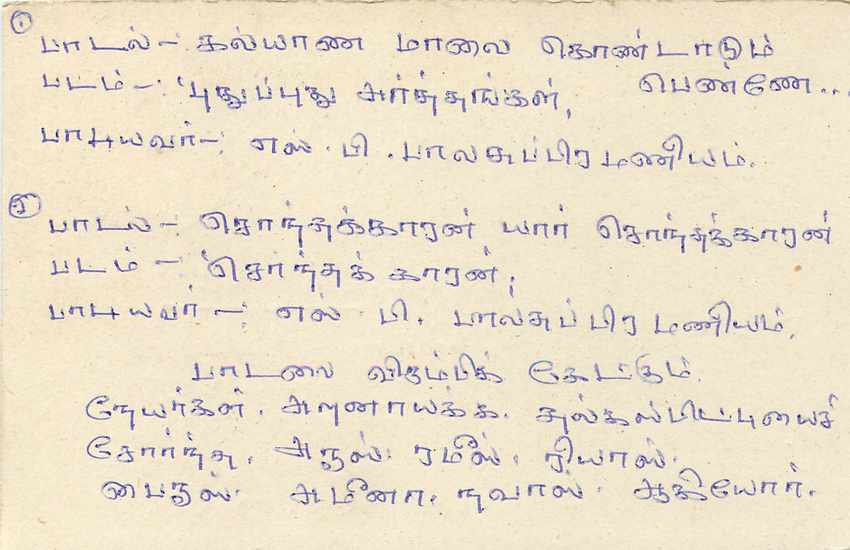 ①
பாடல் - கல்யாண மாலை கொண்டாடும்
படம் - 'புதுப்புது அர்த்தங்கள், பெண்ணே...
பாடியவர் - எஸ். பி. பாலசுப்பிரமணியம்.
②
பாடல் - சொந்துக்காரன் யார் சொந்துக்காரன்
படம் - 'சொந்துக் காரன்,
பாடியவர் - எஸ். பி. பாலசுப்பிரமணியம்.
பாடலை விரும்பிக் கேட்கும்
நேயர்கள். அரனாயக்க.
சேர்ந்த, அநஸ். ரமீஸ். ரியாஸ்.
பைநஸ். அமீனா. நவாஸ். ஆகியோர்.